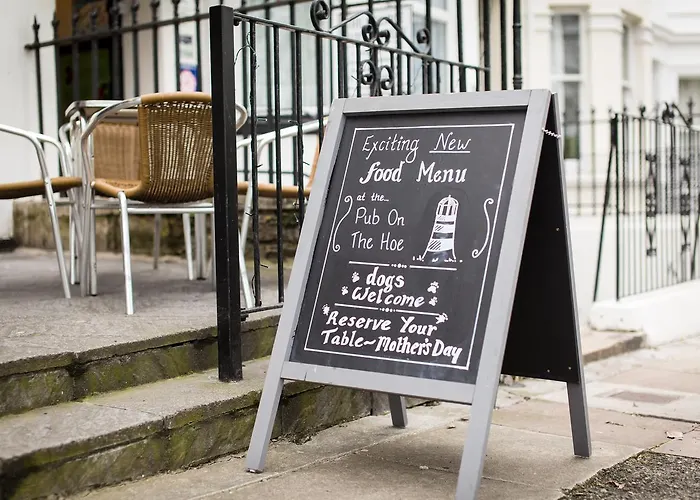 Exciting New
food Menu
at the...
Pub On
The Hoe
dogs
Welcome
Reserve Your
Table~Mother's Day